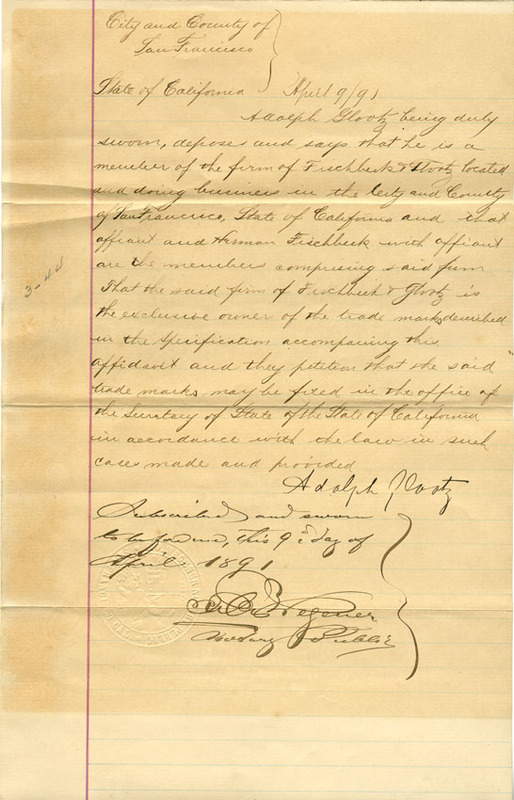 City and County of
San Francisco
State of California April 9/91
Adolph Glootz being duly
sworn, depose and says that he is a
member of the firm of Fischbeck & Glootz located
and doing business in the City and County
of San Francisco, State of California and that
affiant and Herman Fischbeck with affiant
are the members comprising said firm
That the said firm of Fischbeck & Glootz is
the exclusive owner of the trade marks described
in the specification accompaning this
affidavit and they petition that the said
trade marks may be filed in the office of
the Secretary of State of the State of California
in accordance with the law in such
cases made and provided
3-44
Adolph Glootz
Subscribed and sworn
to before me, this 9th day of
April 1891
Wegener
Notary Public